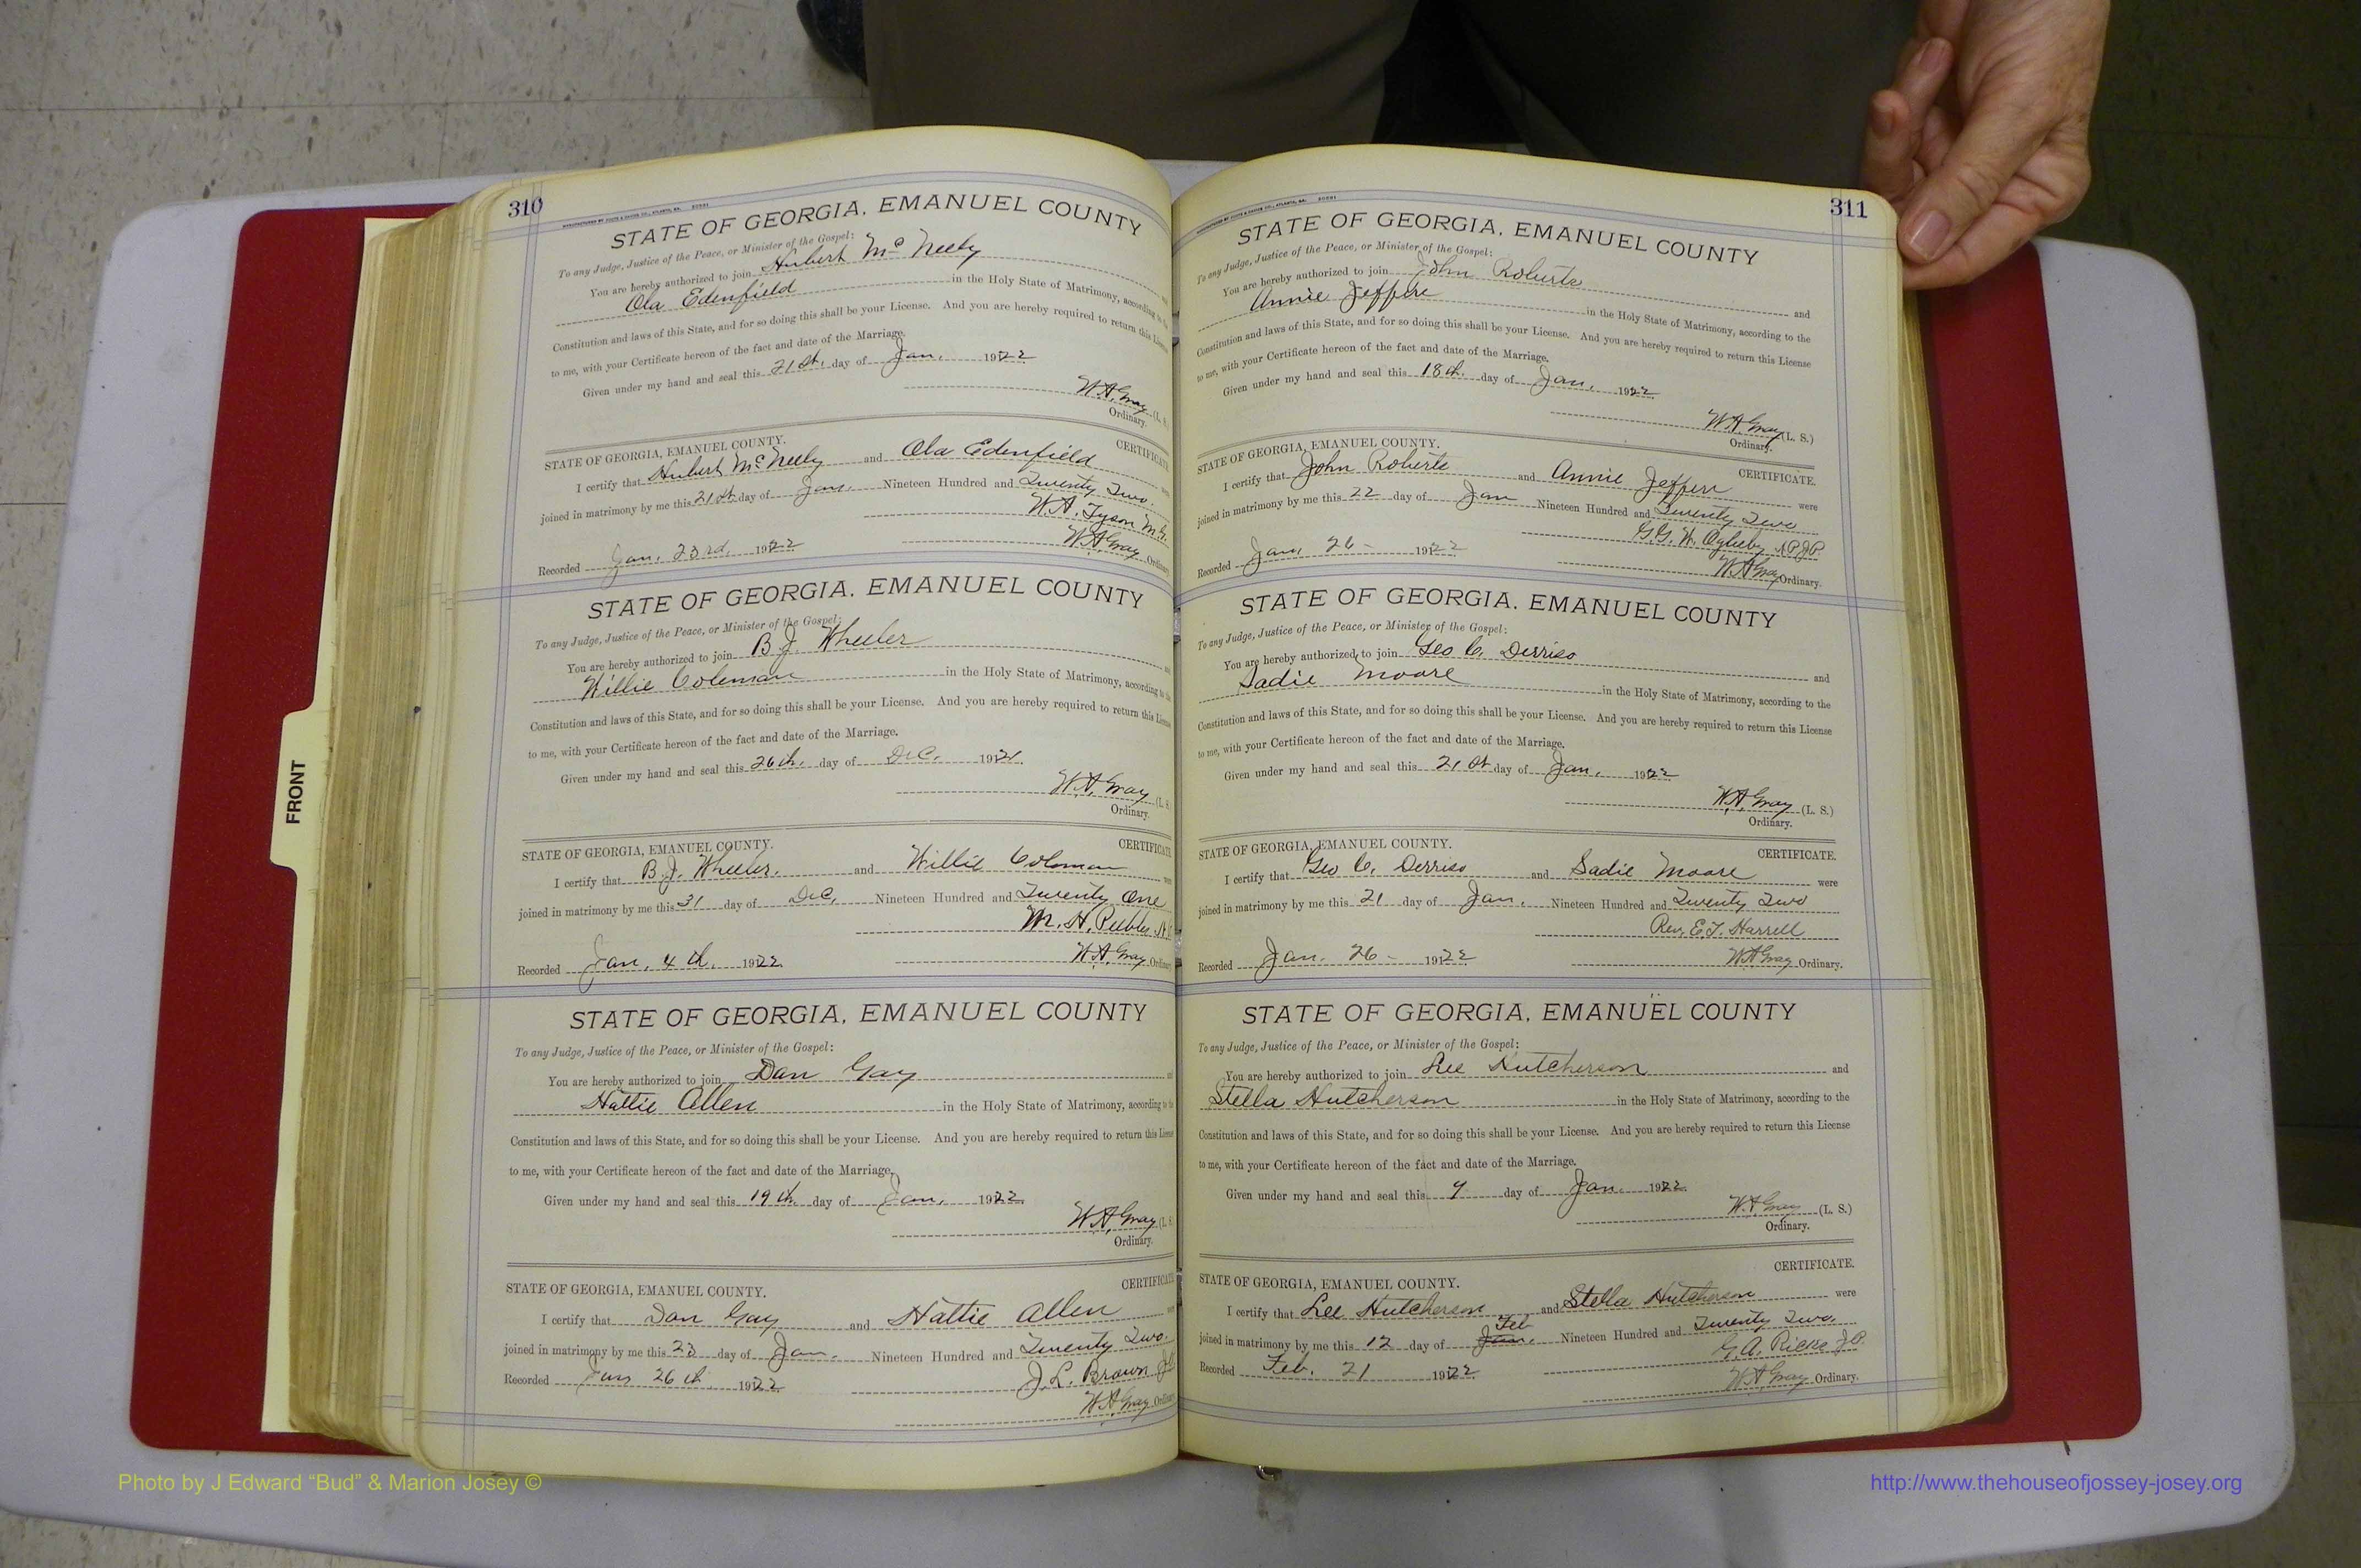 310
STATE OF GEORGIA, EMANUEL COUNTY
To any Judge, Justice of the Peace, or Minister of the Gospel:
You are hereby authorized to join Hubert McNeely
Ola Edenfield in the Holy State of Matrimony, according to the
Constitution and laws of this State, and for so doing this shall be your License. And you are hereby required to return this License
to me, with your Certificate hereon of the fact and date of the Marriage.
Given under my hand and seal this 21st. day of Jan. 1922
W.A. Gray (L. S.
Ordinary.
STATE OF GEORGIA, EMANUEL COUNTY. CERTIFICATE
I certify that Hubert McNeely and Ola Edenfield
joined in matrimony by me this 21st day of Jan. Nineteen Hundred and Twenty Two.
W.A. Tyson M.G.
Recorded Jan. 23rd. 1922 W.A. Gray Ordinary
STATE OF GEORGIA, EMANUEL COUNTY
To any Judge, Justice of the Peace, or Minister of the Gospel:
You are hereby authorized to join B.J. Wheeler
Willie Coleman in the Holy State of Matrimony, according to the
Constitution and laws of this State, and for so doing this shall be your License. And you are hereby required to return this License
to me, with your Certificate hereon of the fact and date of the Marriage.
Given under my hand and seal this 26th. day of Dec. 1921.
W.A. Gray (L. S.
Ordinary.
STATE OF GEORGIA, EMANUEL COUNTY. CERTIFICATE
I certify that B.J. Wheeler. and Willie Coleman
joined in matrimony by me this 31 day of Dec, Nineteen Hundred and Twenty One
M.H. Peebles
Recorded Jan. 4th. 1922. W.A. Gray Ordinary
STATE OF GEORGIA, EMANUEL COUNTY
To any Judge, Justice of the Peace, or Minister of the Gospel:
You are hereby authorized to join Dan Gay
Hattie Allen in the Holy State of Matrimony, according to the
Constitution and laws of this State, and for so doing this shall be your License. And you are hereby required to return this License
to me, with your Certificate hereon of the fact and date of the Marriage.
Given under my hand and seal this 19th. day of Jan. 1922.
W.A. Gray (L. S.
Ordinary.
STATE OF GEORGIA, EMANUEL COUNTY. CERTIFICATE
I certify that Dan Gay and Hattie Allen
joined in matrimony by me this 23 day of Jan. Nineteen Hundred and Twenty Two.
Recorded Jan 26th 1922 J.L. Brown
W.A. Gray Ordinary
311
STATE OF GEORGIA, EMANUEL COUNTY
To any Judge, Justice of the Peace, or Minister of the Gospel:
You are hereby authorized to join John Roberts and
Annie Jeffers in the Holy State of Matrimony, according to the
Constitution and laws of this State, and for so doing this shall be your License. And you are hereby required to return this License
to me, with your Certificate hereon of the fact and date of the Marriage.
Given under my hand and seal this 18th. day of Jan. 1922
W.A. Gray (L. S.)
Ordinary.
STATE OF GEORGIA, EMANUEL COUNTY. CERTIFICATE.
I certify that John Roberts and Annie Jeffers were
joined in matrimony by me this 22 day of Jan Nineteen Hundred and Twenty Two
G.G.W. Oglesby N.P.J.P.
Recorded Jan. 26- 1922 W.A. Gray Ordinary.
STATE OF GEORGIA, EMANUEL COUNTY
To any Judge, Justice of the Peace, or Minister of the Gospel:
You are hereby authorized to join Geo C. Derriso and
Sadie Moore in the Holy State of Matrimony, according to the
Constitution and laws of this State, and for so doing this shall be your License. And you are hereby required to return this License
to me, with your Certificate hereon of the fact and date of the Marriage.
Given under my hand and seal this 21st day of Jan. 1922
W.A. Gray (L. S.)
Ordinary.
STATE OF GEORGIA, EMANUEL COUNTY. CERTIFICATE.
I certify that Geo C. Derriso and Sadie Moore were
joined in matrimony by me this 21 day of Jan. Nineteen Hundred and Twenty Two
Rev. E.T. Harrell
Recorded Jan. 26- 1922 W.A. Gray Ordinary.
STATE OF GEORGIA, EMANUEL COUNTY
To any Judge, Justice of the Peace, or Minister of the Gospel:
You are hereby authorized to join Lee Hutcherson and
Stella Hutcherson in the Holy State of Matrimony, according to the
Constitution and laws of this State, and for so doing this shall be your License. And you are hereby required to return this License
to me, with your Certificate hereon of the fact and date of the Marriage.
Given under my hand and seal this 9 day of Jan. 1922.
W.A. Gray (L. S.)
Ordinary.
CERTIFICATE.
STATE OF GEORGIA, EMANUEL COUNTY.
I certify that Lee Hutcherson and Stella Hutcherson were
Feb
joined in matrimony by me this 12 day of Jan. Nineteen Hundred and Twenty Two.
G.A. Ricks J.P.
Recorded Feb. 21 1922 W.A. Gray Ordinary.
FRONT
Photo by J Edward “Bud” & Marion Josey ©
http://www.thehouseofjossey-josey.org